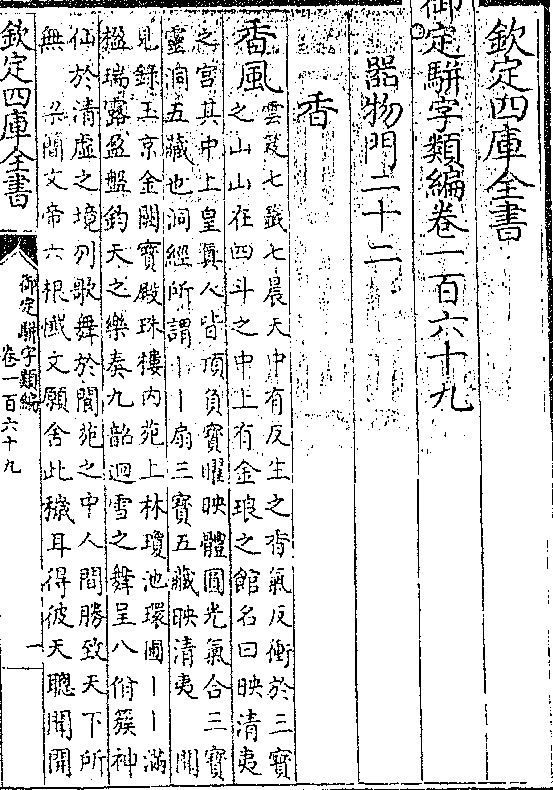 欽定四庫全書
御定駢字類編卷一百六十九
器物門二十二
香
香風
雲笈七籤七晨天中有反生之香氣反衝於三寶
之山山在四斗之中上有金琅之館名曰映清夷
之宫其中上皇眞人皆項負寶曜映體圓光氣合三寶
靈洞五藏也洞經所謂丨丨扇三寶五藏映清夷 聞
見錄玉京金闕寶殿珠樓内苑上林瓊池環圃丨丨滿
楹瑞露盈盤鈞天之樂奏九韶迴雪之舞呈八佾簇神
仙於清虚之境列歌舞於閬苑之中人間勝致天下所
無 梁簡文帝六根懺文願舍此穢耳得彼天聰聞開
欽定四庫全書
御定駢字類編
卷一百六十九
一